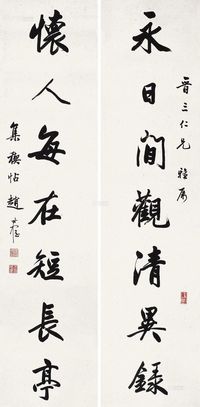 永日閒觀清異錄
晋三仁兄雅属
懷人每在短長亭
集禊帖趙